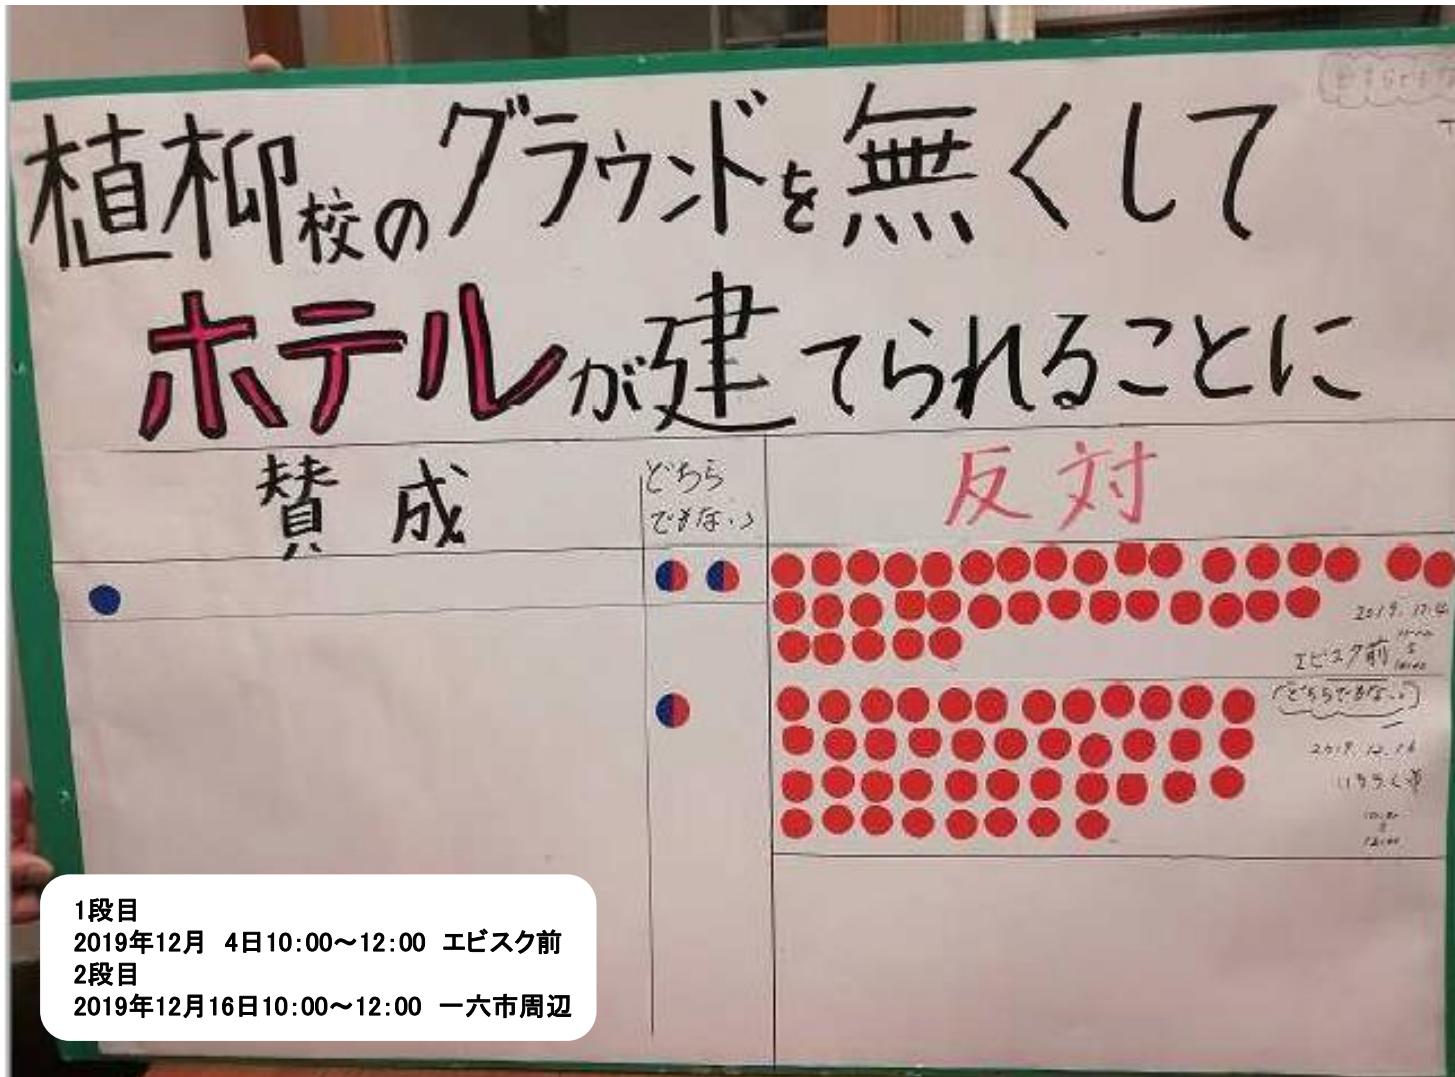 植柳校のグラウンドを無くして
ホテルが建てられることに
賛成
どちら
でもない
反対
2019.12.4
エビスク前
10:00
「どちらでもない」
2019.12.16
12:00
1段目
2019年12月 4日10:00～12:00 エビスク前
2段目
2019年12月16日10:00～12:00 一六市周辺